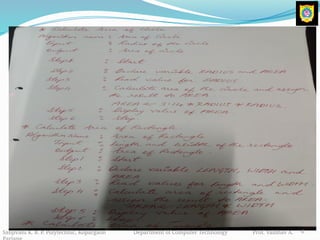 * Calculate Area of Circle
Algorithm name : Area of Circle
Input : Radius of the Circle
Output : Area of Circle
Step1 : Start
Step2 : Declare variable RADIUS and AREA
Step3 : Read value for RADIUS
Step4 : Calculate area of the Circle and assign
the result to AREA
AREA = 3.14 * RADIUS * RADIUS
Step5 : Display value of AREA
Step6 : Stop
* Calculate Area of Rectangle
Algorithm name : Area of Rectangle
Input : Length and Width of the rectangle
Output : Area of Rectangle
Step1 : Start
Step2 : Declare variable LENGTH, WIDTH and
AREA
Step3 : Read values for LENGTH and WIDTH
Step4 : Calculate area of rectangle and
assign the result to AREA
AREA = LENGTH * WIDTH
Step5 : Display value of AREA
Step6 : Stop
Sanjivani K. B. P. Polytechnic, Kopargaon Department of Computer Technology Prof. Vaibhav A.